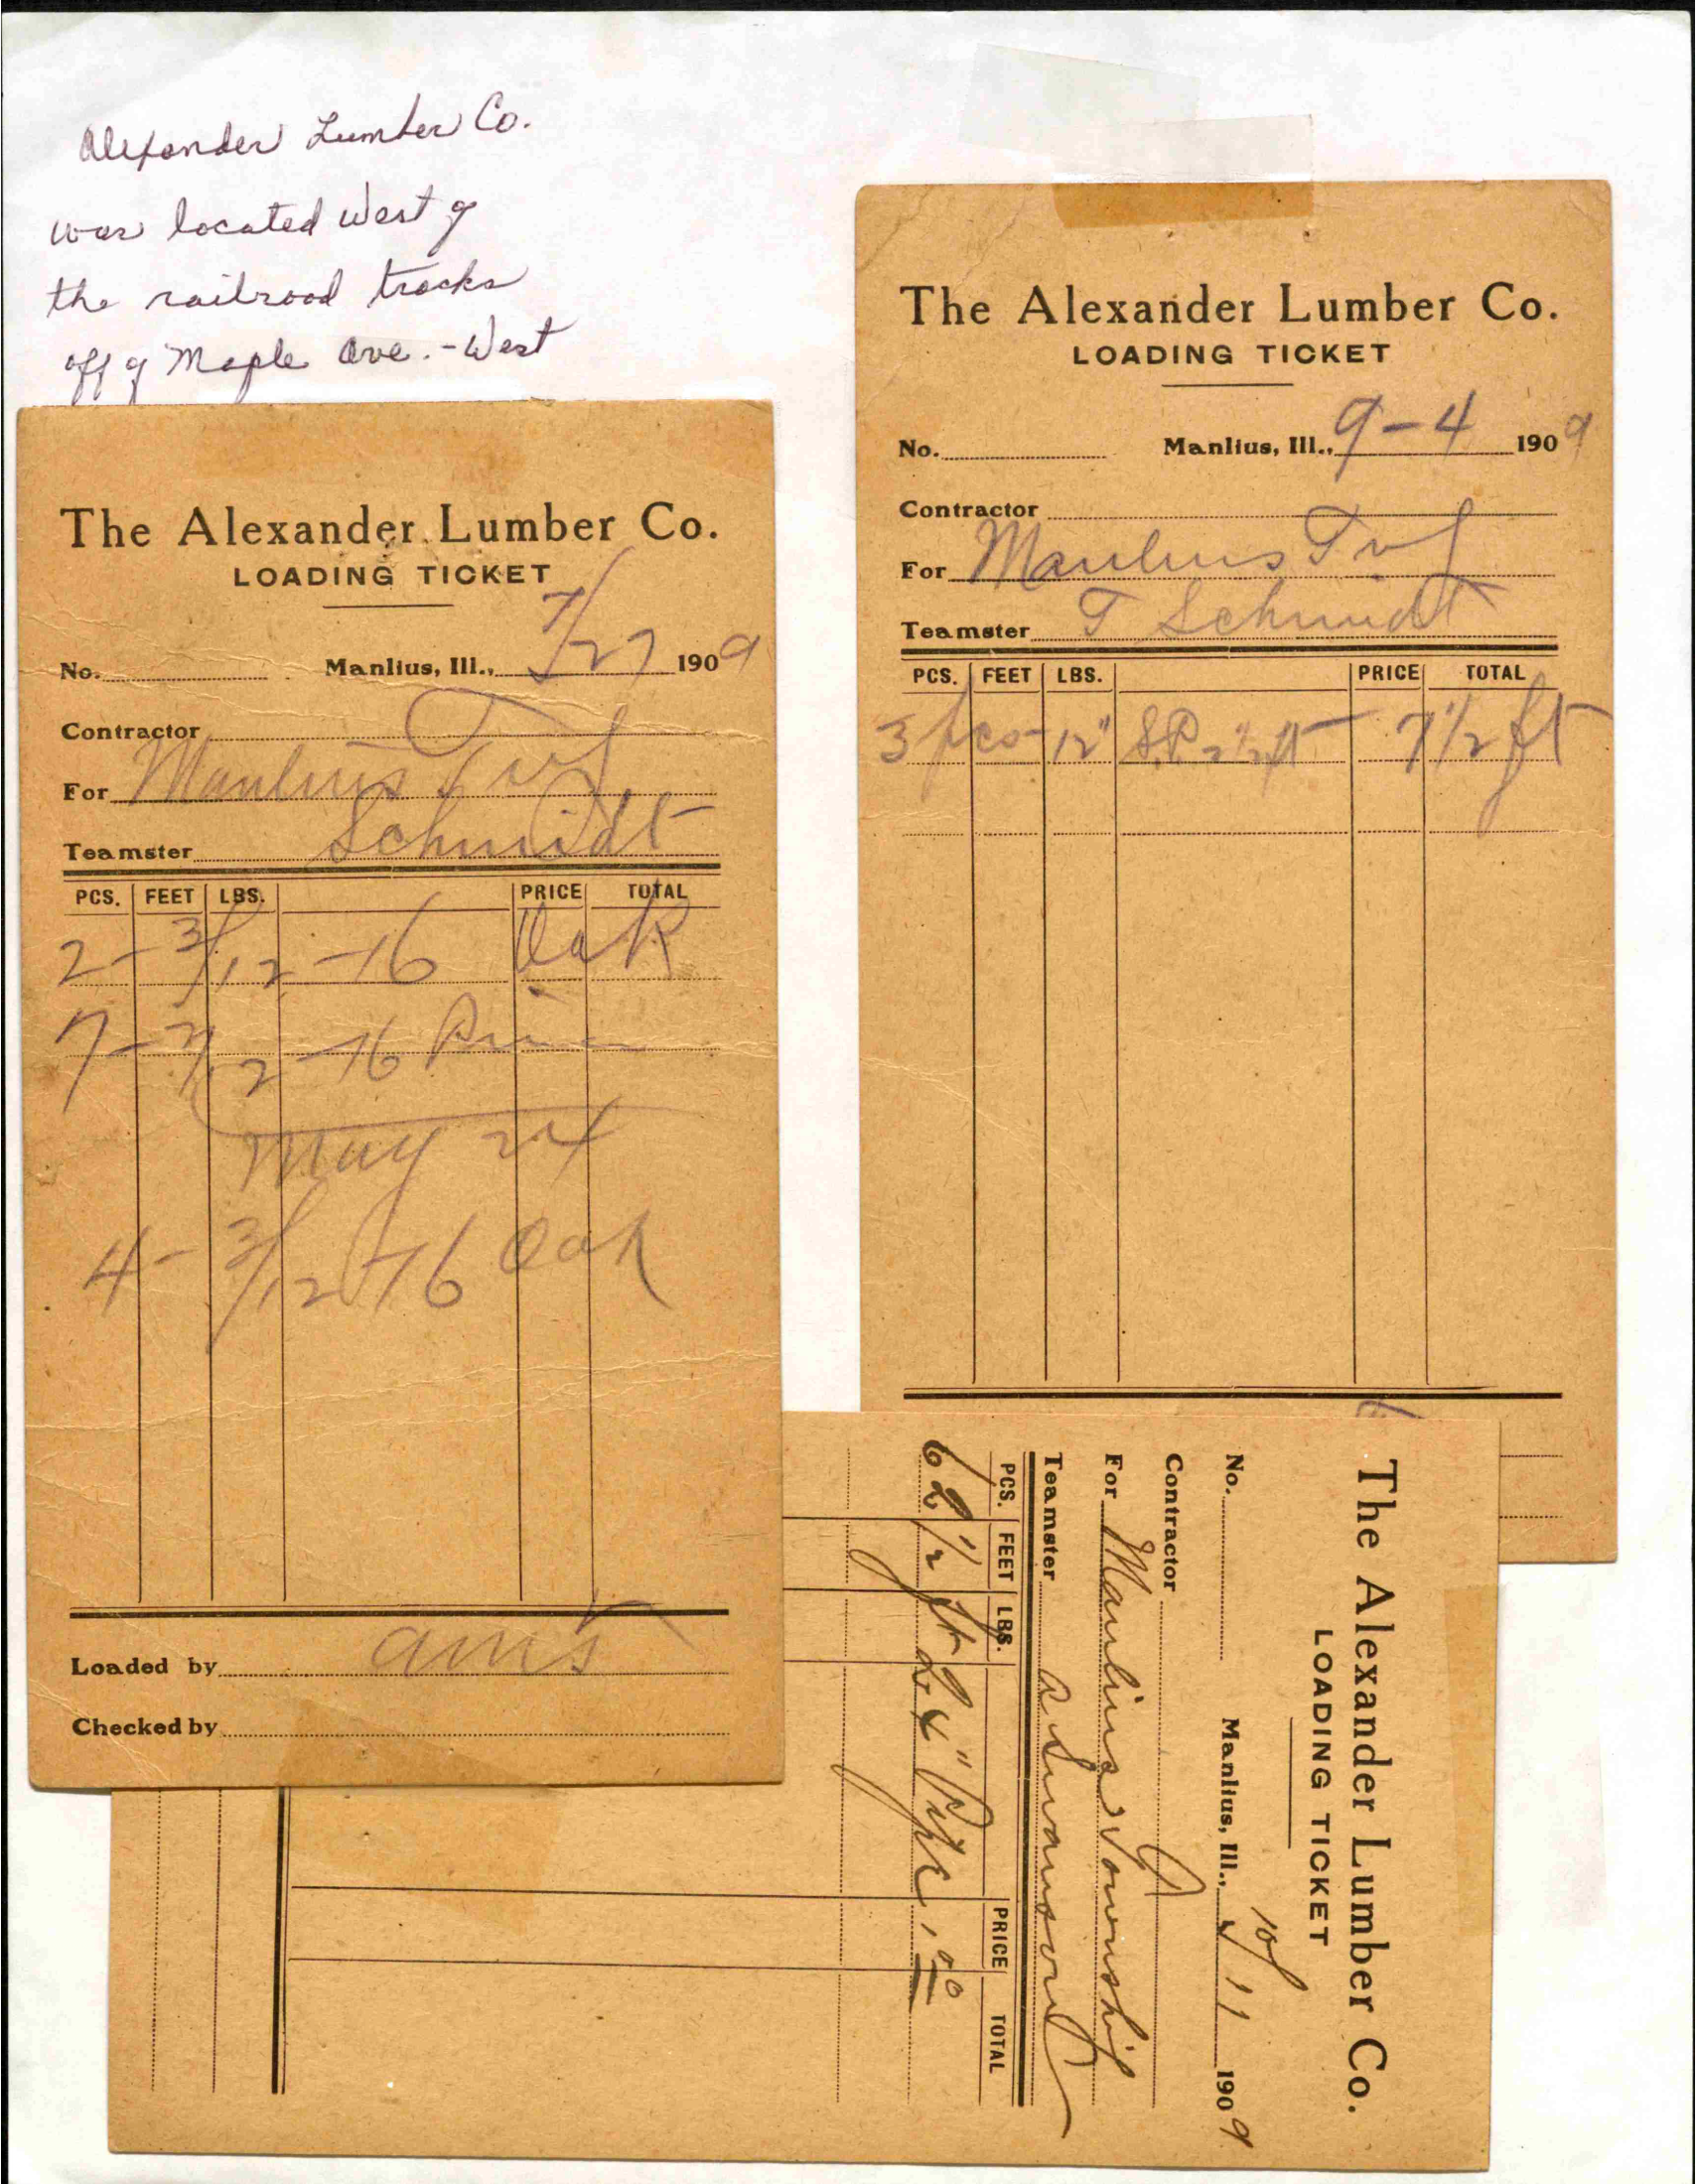 Alexander Lumber Co.
was located West of
the railroad tracks
off of Maple Ave. - West
The Alexander Lumber Co.
LOADING TICKET
No. Manlius, Ill., 7/27 1909
Contractor
For Manlius Twp
Teamster Schmidt
PCS. FEET LBS. PRICE TOTAL
2 - 3/12 - 16 Oak
7 - 3/12 - 16
May 24
4 - 3/12 - 16 Oak
Loaded by
Checked by
The Alexander Lumber Co.
LOADING TICKET
No. Manlius, Ill., 9-4 1909
Contractor
For Manlius Twp
Teamster T Schmidt
PCS. FEET LBS. PRICE TOTAL
3 pcs - 12" S.P. 2 1/2 ft - 7 1/2 ft
The Alexander Lumber Co.
LOADING TICKET
No. Manlius, Ill., 11 1909
Contractor
For Manlius Township
Teamster A Swanson
PCS. FEET LBS. PRICE TOTAL
62 1/2 ft 24" Pipe